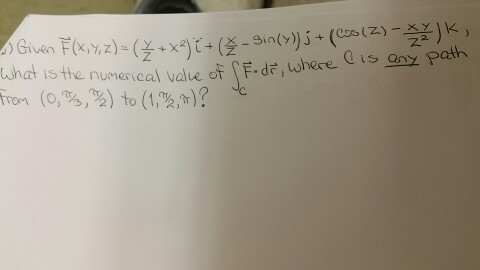 .) Given F⃗(x,y,z) = (y/z + x²)i⃗ + (x/z - sin(y))j + (cos(z) - xy/z²)k,
what is the numerical value of ∫_C F⃗·dr⃗, where C is any path
from (0, π/3, π/2) to (1, π/2, π)?